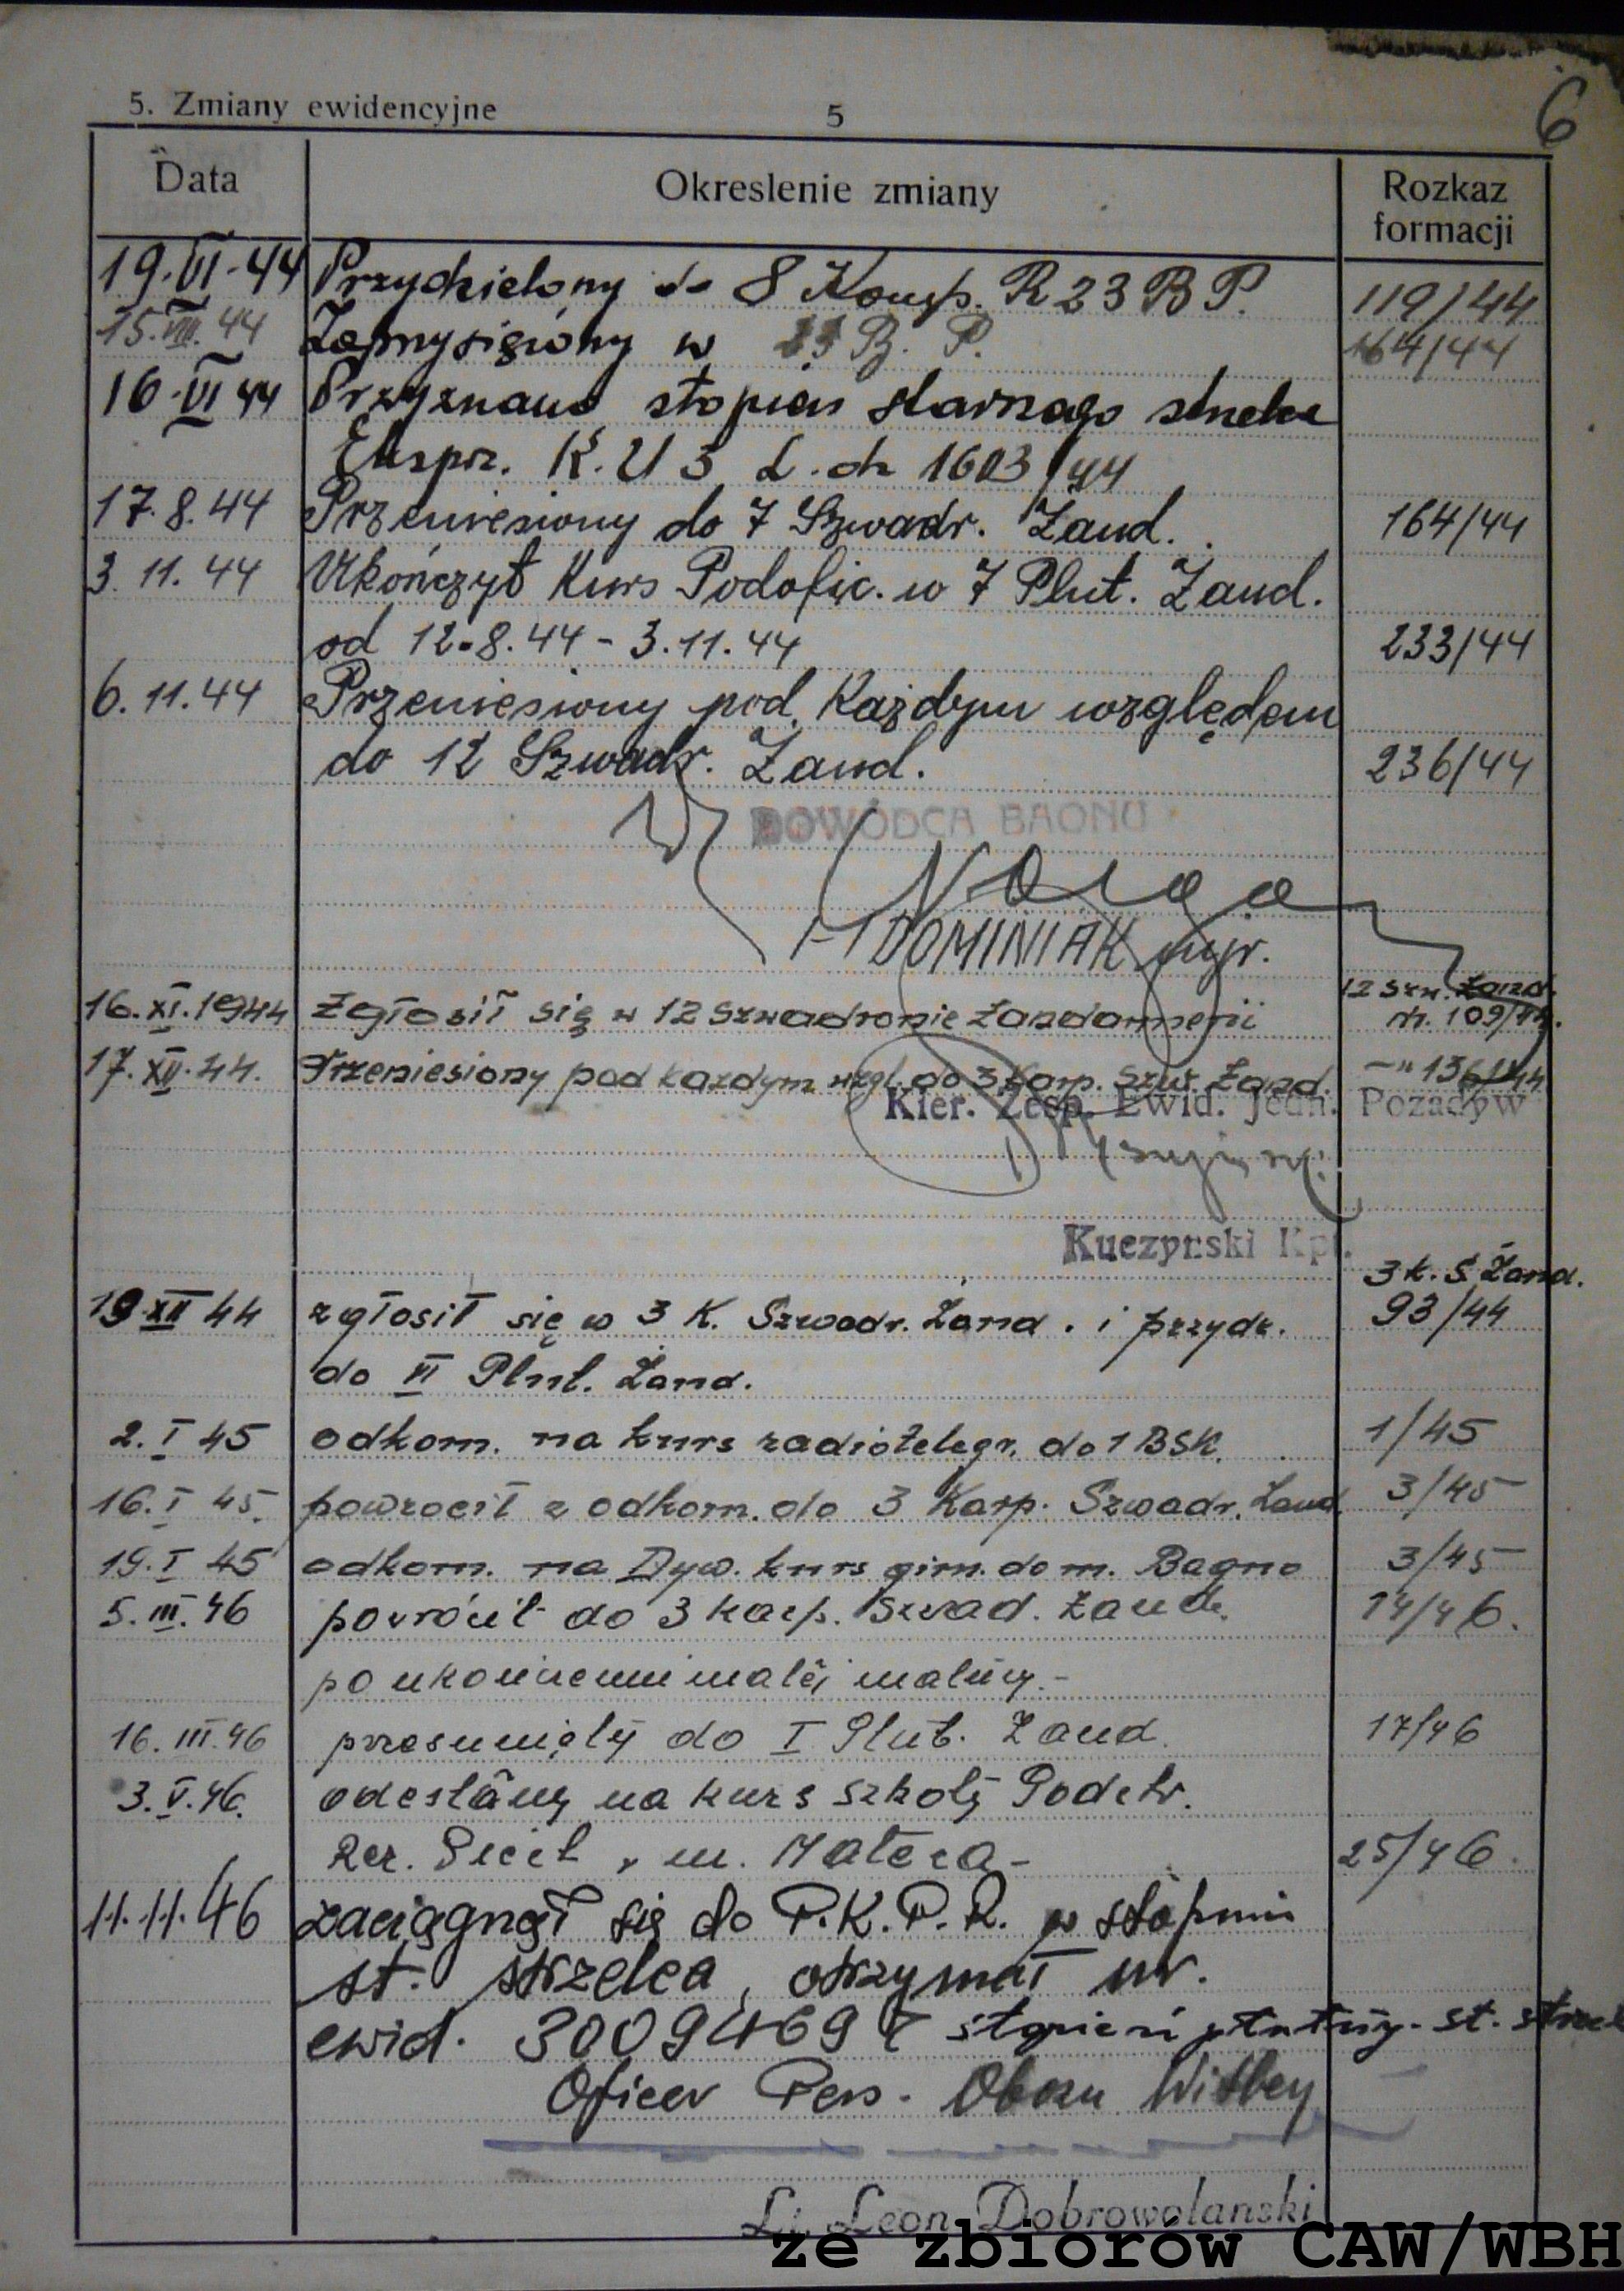 6
5. Zmiany ewidencyjne 5
Data Okreslenie zmiany Rozkaz formacji
19.VI.44 Przydzielony do 8 Komp. R 23 B P. 119/44
15.VIII.44 Zaprzysiężony w 23 B. P. 164/44
16.VI 44 Przyznano stopień starszego strzelca
Ekspoz. K.U 3 L.dz 1603/44
17.8.44 Przeniesiony do 7 Szwadr. Żand. 164/44
3.11.44 Ukończył Kurs Podofic. w 7 Plut. Żand.
od 12.8.44 - 3.11.44 233/44
6.11.44 Przeniesiony pod każdym względem
do 12 Szwadr. Żand. 236/44
DOWÓDCA BAONU
DOMINIAK mjr.
16.XI.1944 Zgłosił się w 12 Szwadronie Żandarmerii 12 Szw. Żand. nr. 109/44.
17.XII.44. Przeniesiony pod każdym wzgl. do 3 Karp. Szw. Żand. —"— 136/44
Kier. Zesp. Ewid. Jedn. Pozadyw
Kuczynski Kpt.
19 XII 44 zgłosił się w 3 K. Szwadr. Żand. i przydz. 3 K. S. Żand. 93/44
do VI Plut. Żand.
2.I 45 odkom. na kurs radiotelegr. do 1 BSK. 1/45
16.I 45. powrócił z odkom. do 3 Karp. Szwadr. Żand. 3/45
19.I 45 odkom. na Dyw. kurs gim. do m. Bagno 3/45
5.III.46 powrócił do 3 karp. Szwad. Żand. 14/46.
po ukończeniu małej matury.-
16.III.46 przesunięty do I Plut. Żand. 17/46
3.V.46. odesłany na kurs szkoły Podchr.
Rez. Piech. m. Matera- 25/46.
11.11.46 zaciągnął się do P.K.P.R. w stopniu
st. strzelca, otrzymał nr.
ewid. 30094697 stopień płatny- st. strzel
Oficer Pers. Obozu Witley
Leon Dobrowolanski
ze zbiorów CAW/WBH